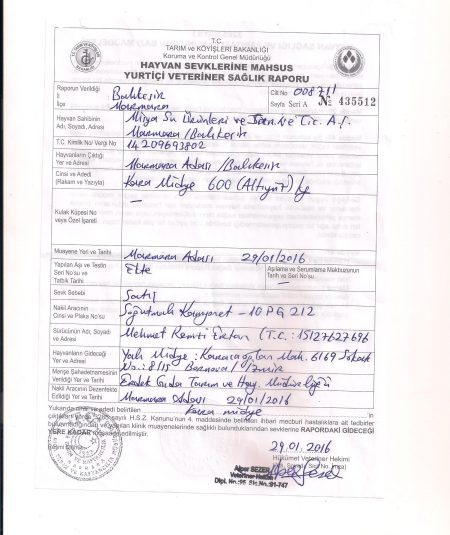 T.C.
TARIM ve KÖYİŞLERİ BAKANLIĞI
Koruma ve Kontrol Genel Müdürlüğü
HAYVAN SEVKLERİNE MAHSUS
YURTİÇİ VETERİNER SAĞLIK RAPORU
Raporun Verildiği
İl Balıkesir
İlçe Marmara
Cilt No 008711
Sayfa Seri A No 435512
Hayvan Sahibinin
Adı, Soyadı, Adresi
Su Ürünleri ve Tic. A.Ş.
Marmara/Balıkesir
T.C. Kimlik No/ Vergi No 14209693802
Hayvanların Çıktığı
Yer ve Adresi Marmara Adası/Balıkesir
Cinsi ve Adedi
(Rakam ve Yazıyla) Kara Midye 600 (Altıyüz) kg
Kulak Küpesi No
veya Özel İşareti —
Muayene Yeri ve Tarihi Marmara Adası 29/01/2016
Yapılan Aşı ve Testin
Seri No'su ve
Tatbik Tarihi
Aşılama ve Serumlama Makbuzunun
Tarih ve Seri No'su —
Sevk Sebebi Satış
Nakil Aracının
Cinsi ve Plaka No'su Soğutmalı Kamyonet - 10 PG 212
Sürücünün Adı, Soyadı
ve Adresi Mehmet Remzi (T.C.: 15127627696
Hayvanların Gideceği
Yer ve Adresi Yalı Midye: Karacaoğlan Mah. 6169 Sokak
No: 8/15 Bornova/İzmir
Menşe Şahadetnamesinin
Verildiği Yer ve Tarihi Erdek Gıda Tarım ve Hay. Müdürlüğü
Nakil Aracının Dezenfekte
Edildiği Yer ve Tarihi Marmara Adası 29/01/2016
Yukarıda cinsi ve adedi belirtilen kara midye 'in
sayılı H.S.Z. Kanunu'nun 4. maddesinde belirtilen ihbari mecburi hastalıklara ait tedbirler
klinik muayenelerinde sağlıklı bulunduklarından sevklerine RAPORDAKİ GİDECEĞİ
YERE KADAR
29.01.2016
Hükümet Veteriner Hekimi
Alper SEZER
Veteriner Hekim